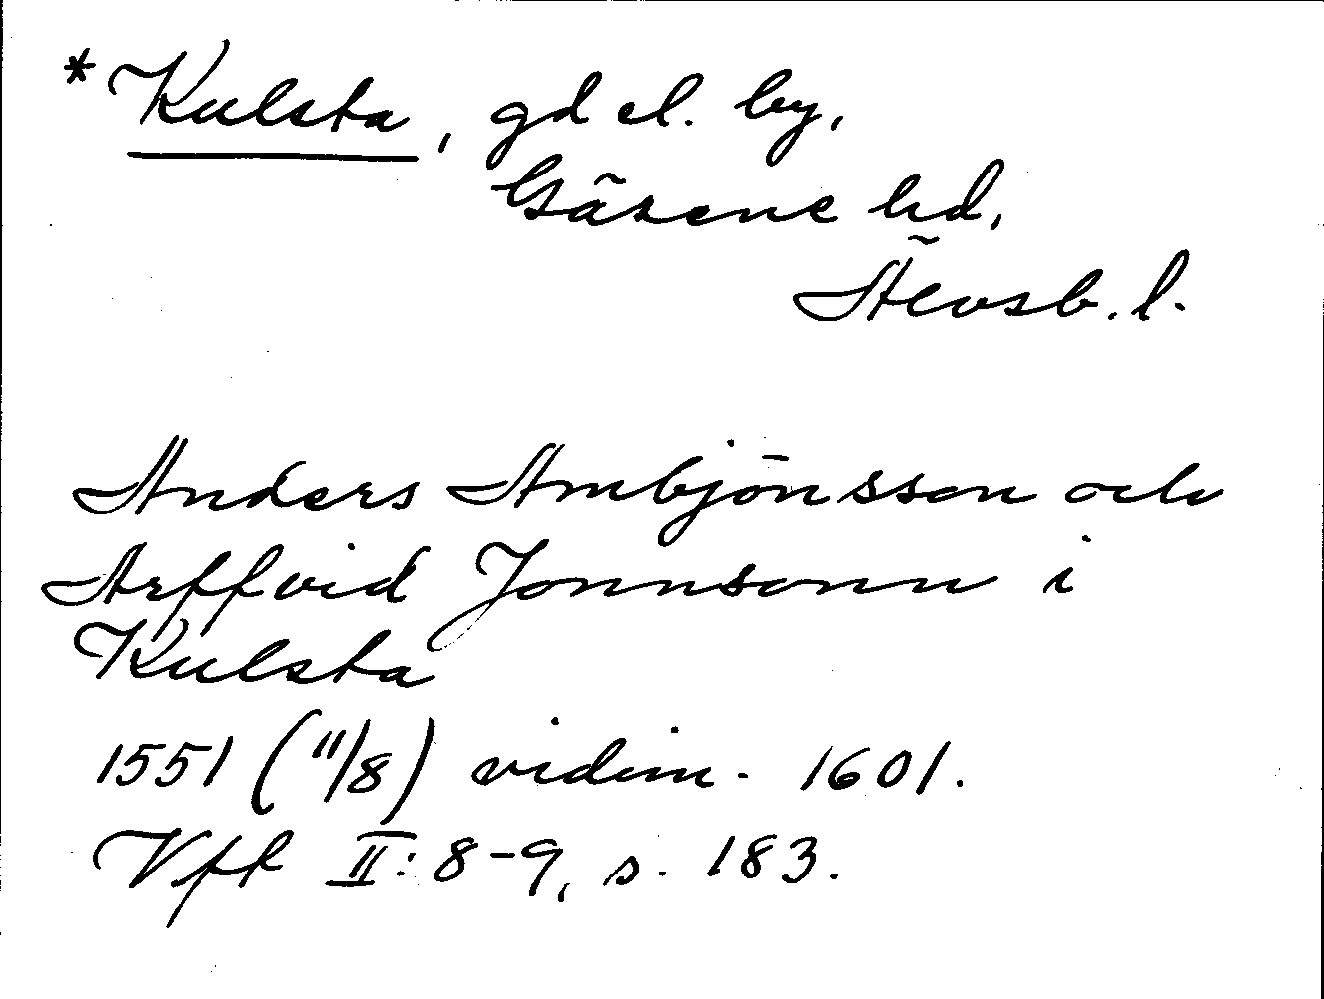 *Kulsta, gd el. by,
Gäsene hd,
Älvsb. l.
Anders Ambjönsson och
Arffvid Jonnsonn i
Kulsta
1551 (11/8) vidim. 1601.
Vfft II: 8-9, s. 183.